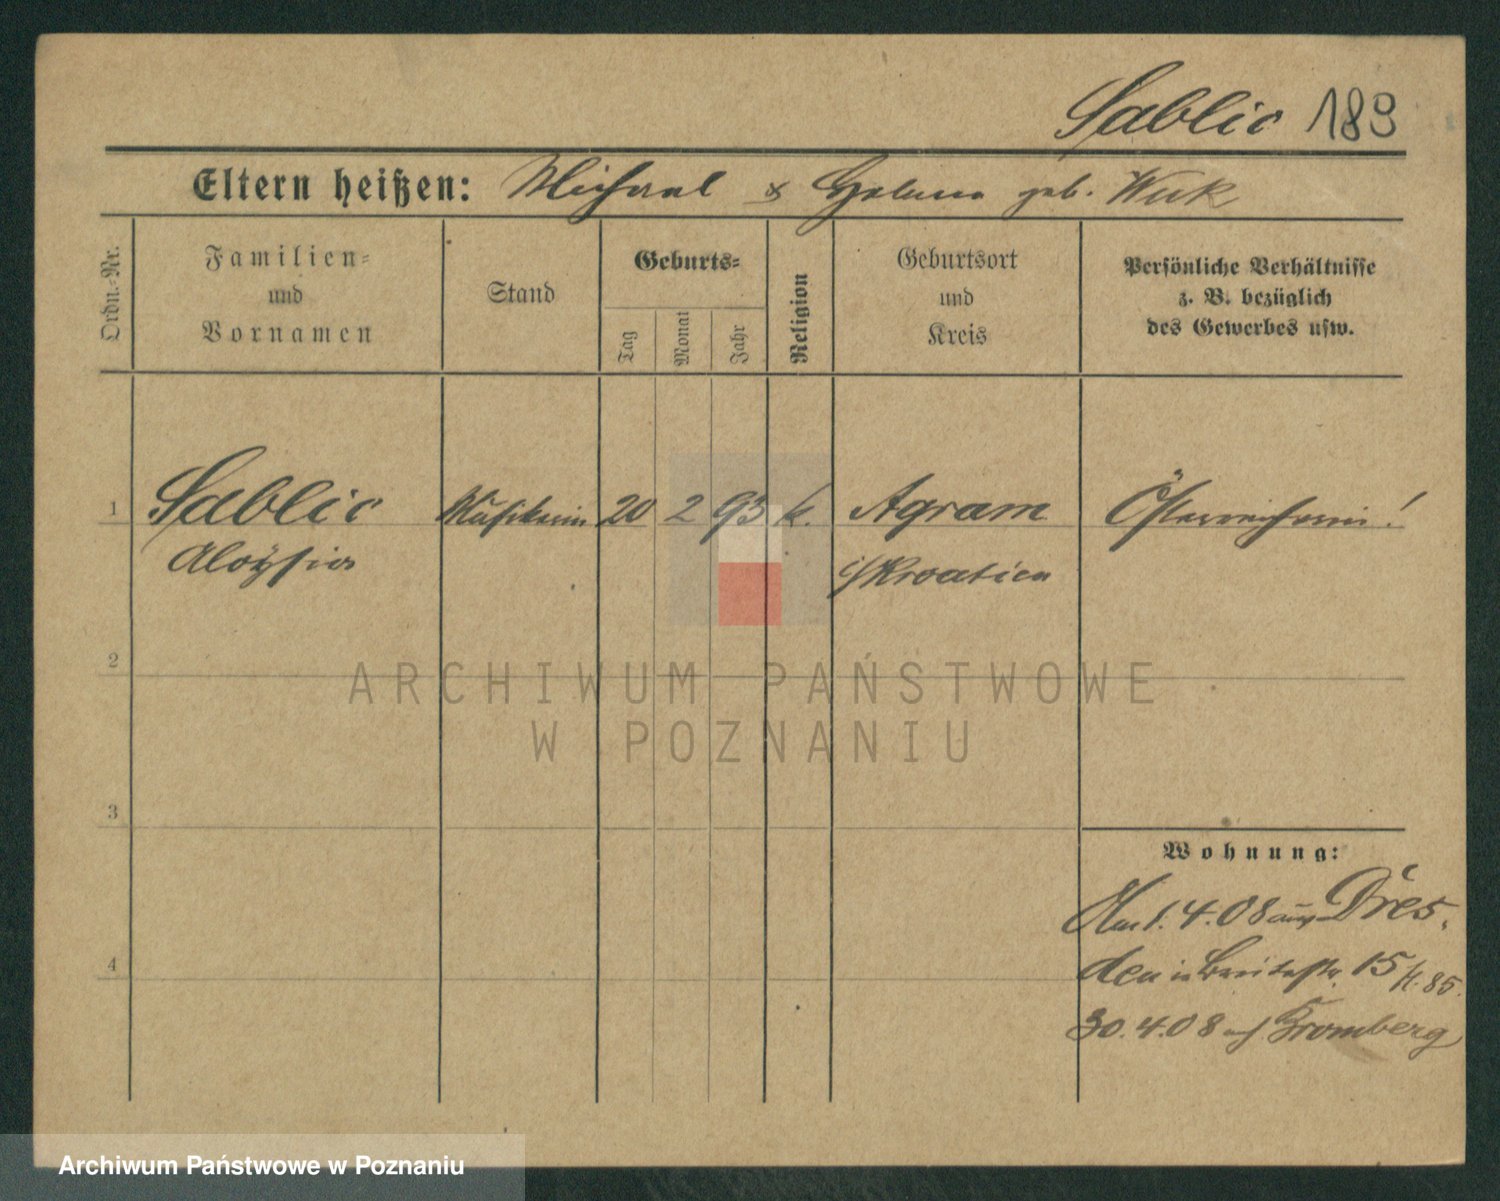 Sablic 189
Eltern heißen: Michael & Helena geb. Wuk
Ordn.-Nr.
Familien-
und
Vornamen
Stand
Geburts-
Tag
Monat
Jahr
Religion
Geburtsort
und
Kreis
Persönliche Verhältnisse
z. B. bezüglich
des Gewerbes usw.
1 Sablic Musikerin 20 2 93 k. Agram Österreicherin!
Aloÿsia i/Kroatien
2
3
4
Wohnung:
1.4.08 aus Dres,
den in Breitestr. 15 /H. 85.
30.4.08 n/ Bromberg
ARCHIWUM PAŃSTWOWE
W POZNANIU
Archiwum Państwowe w Poznaniu